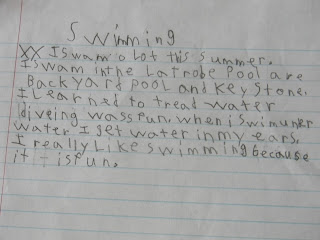 Swimming
XX I swam a lot this summer.
I swam in the Latrobe Pool are
Backyard pool and Key Stone.
I Learned to tread water
diveing wass fun. when i swim uner
water I get water in my ears.
I really Like swimming because
it is fun.